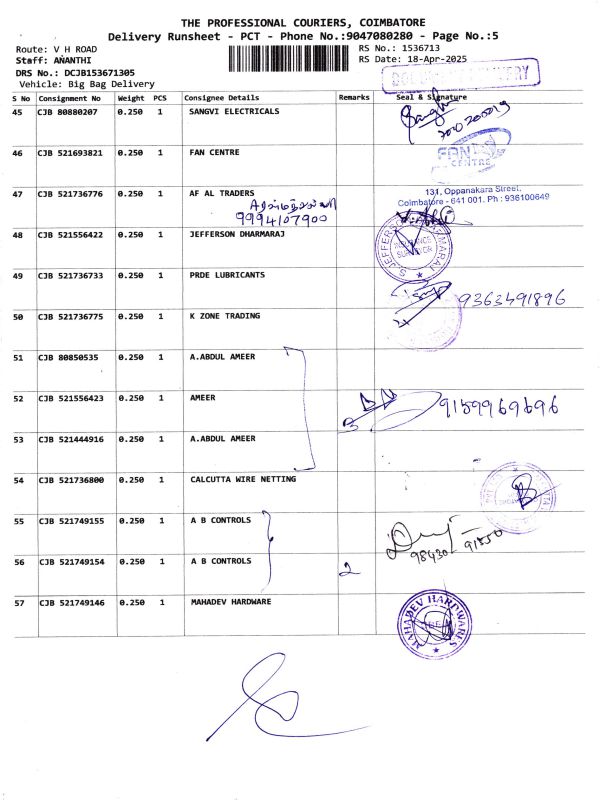 THE PROFESSIONAL COURIERS, COIMBATORE
Delivery Runsheet - PCT - Phone No.:9047080280 - Page No.:5
Route: V H ROAD
RS No.: 1536713
Staff: ANANTHI
RS Date: 18-Apr-2025
DRS No.: DCJB153671305
Vehicle: Big Bag Delivery
S No Consignment No Weight PCS Consignee Details Remarks Seal & Signature
45 CJB 80880207 0.250 1 SANGVI ELECTRICALS
46 CJB 521693821 0.250 1 FAN CENTRE
FAN
CENTRE
47 CJB 521736776 0.250 1 AF AL TRADERS
131, Oppanakara Street,
Coimbatore - 641 001. Ph : 936100649
9994107900
48 CJB 521556422 0.250 1 JEFFERSON DHARMARAJ
INSURANCE
SURVEYOR
49 CJB 521736733 0.250 1 PRDE LUBRICANTS
9363491896
50 CJB 521736775 0.250 1 K ZONE TRADING
51 CJB 80850535 0.250 1 A.ABDUL AMEER
52 CJB 521556423 0.250 1 AMEER
9159969696
53 CJB 521444916 0.250 1 A.ABDUL AMEER
54 CJB 521736800 0.250 1 CALCUTTA WIRE NETTING
55 CJB 521749155 0.250 1 A B CONTROLS
98430 - 91550
56 CJB 521749154 0.250 1 A B CONTROLS 2
57 CJB 521749146 0.250 1 MAHADEV HARDWARE
MAHADEV HARDWARES